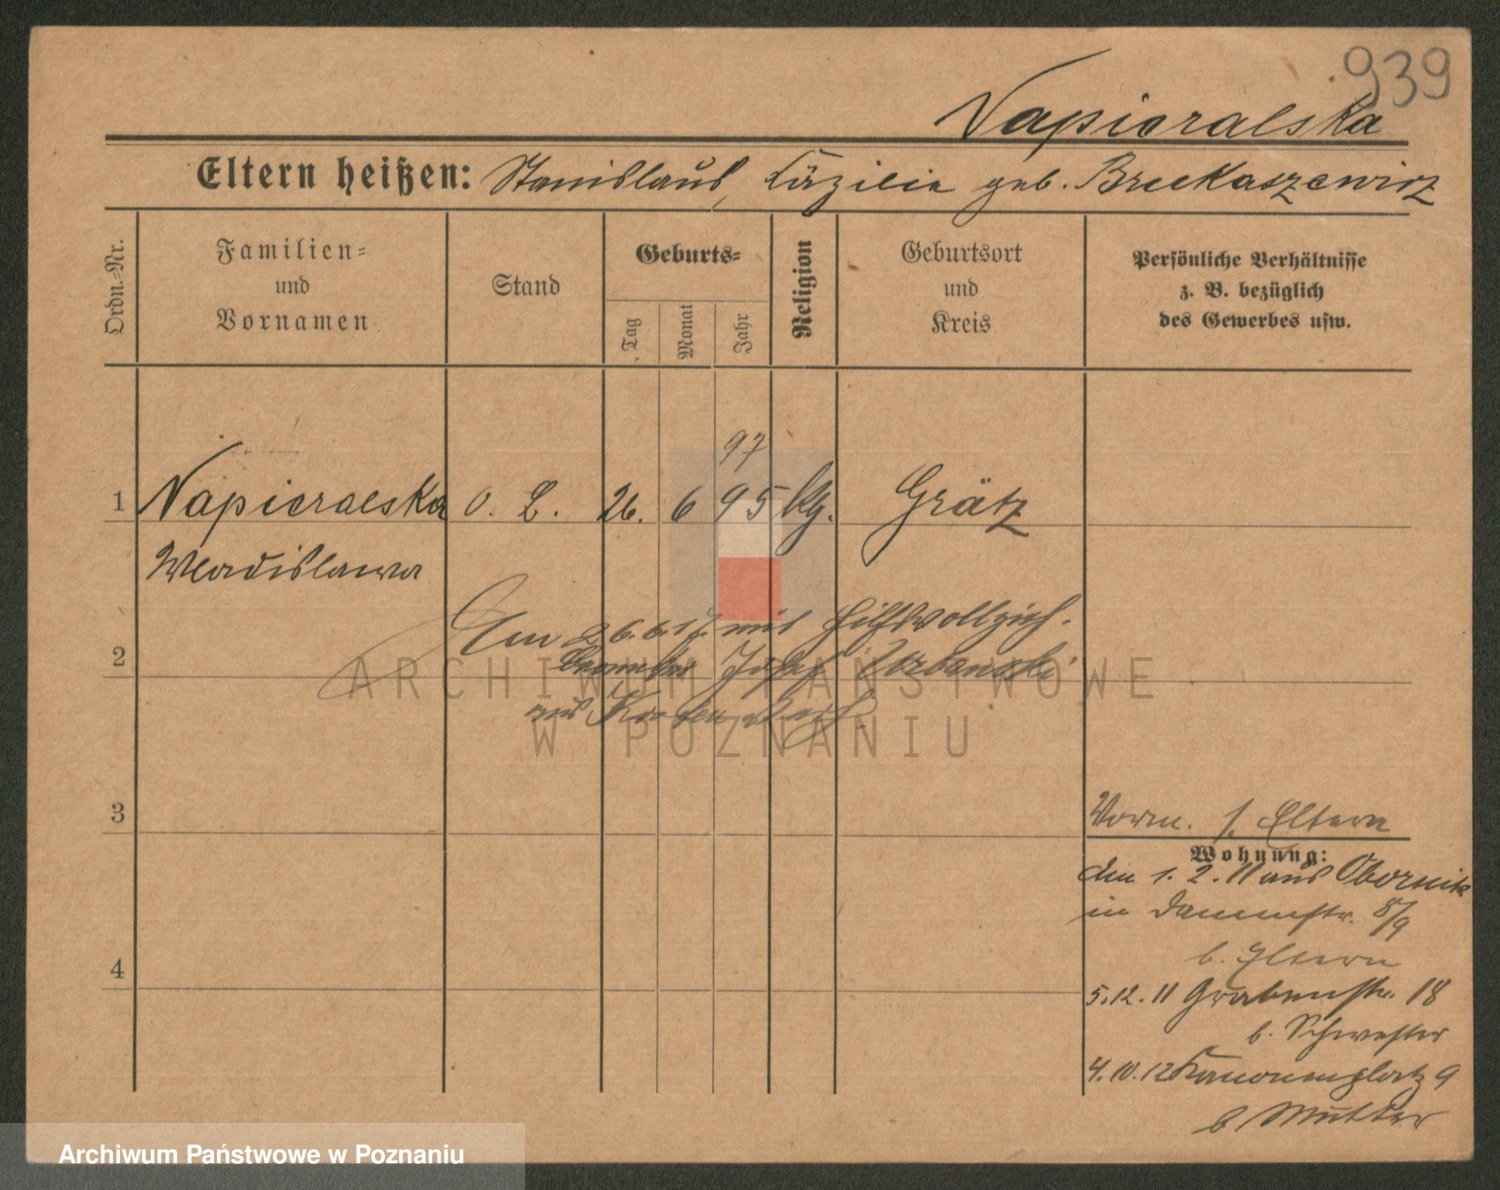 939
Napieralska
Eltern heißen: Stanislaus, Cäzilie geb. Bruckaszewicz
Ordn.-Nr.
Familien-
und
Vornamen
Stand
Geburts-
Tag
Monat
Jahr
Religion
Geburtsort
und
Kreis
Persönliche Verhältnisse
z. B. bezüglich
des Gewerbes usw.
97
1 Napieralska o. L. 26. 6 95 kg. Grätz
Wladislawa
Am 26.6.17 mit Hilfsvollzieh.
2 Beamter Josef Urbanski
aus
3
Vorm. s. Eltern
Wohnung:
den 1. 2. 11 aus Obornik
in Dammstr. 8/9
b. Eltern
4
5.12.11 Grabenstr. 18
b. Schwester
4.10.12 Kanonenplatz 9
b Mutter
ARCHIWUM PAŃSTWOWE
W POZNANIU
Archiwum Państwowe w Poznaniu